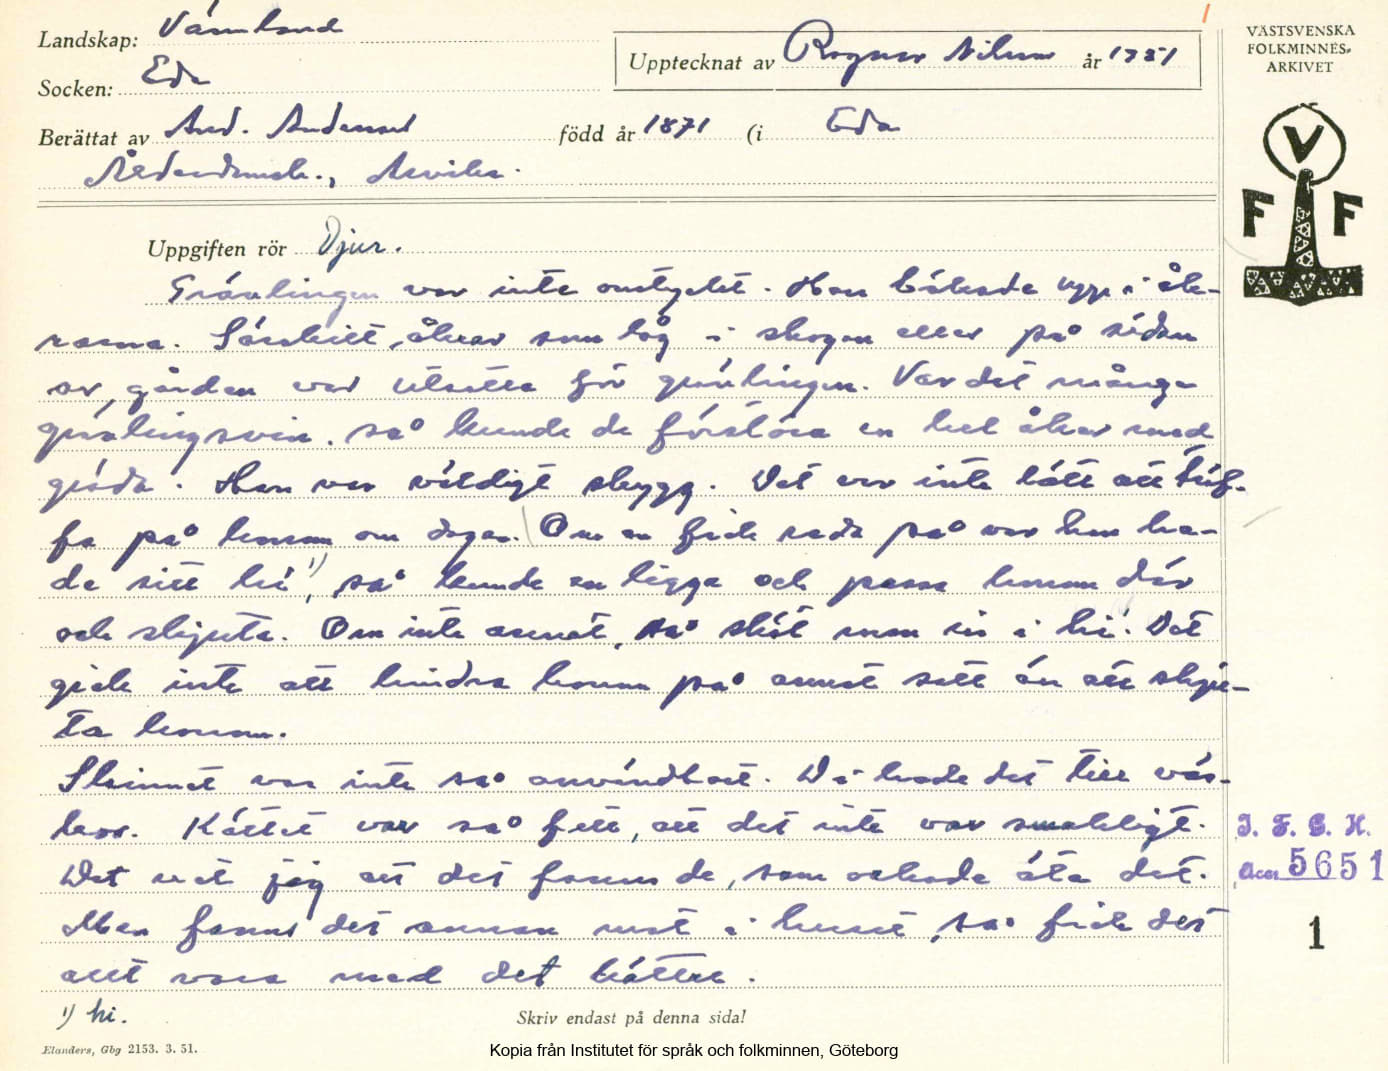 Landskap: Värmland
Socken: Eda
Upptecknat av Ragnar Nilsson år 1951
Berättat av And. Andersson född år 1871 (i Eda
Ålderdomsh., Arvika.
Uppgiften rör Djur.
Grävlingen var inte omtyckt. Han bökade upp i åk-
rarna. Särskilt åkrar som låg i skogen eller på sidan
av gården var utsatta för grävlingen. Var det många
grävlingsvin, så kunde de förstöra en hel åker med
gröda. Han var väldigt skygg. Det var inte lätt att träf-
fa på honom om dagen. Om en fick reda på var han ha-
de sitt hi 1), så kunde en ligga och passa honom där
och skjuta. Om inte annat, så sköt man in i hi. Det
gick inte att hindra honom på annat sätt än att skju-
ta honom.
Skinnet var inte så användbart. De hade det till väs-
kor. Köttet var så fett, att det inte var smakligt.
Det vet jag att det fanns de, som orkade äta det.
Men fanns det annan mat i huset, så fick det
allt vara med det köttet.
1) hi.
Skriv endast på denna sida!
Elanders, Gbg 2153. 3. 51.
Kopia från Institutet för språk och folkminnen, Göteborg
VÄSTSVENSKA
FOLKMINNES-
ARKIVET
V
F F
I. F. G. H.
Acc. 5651
1